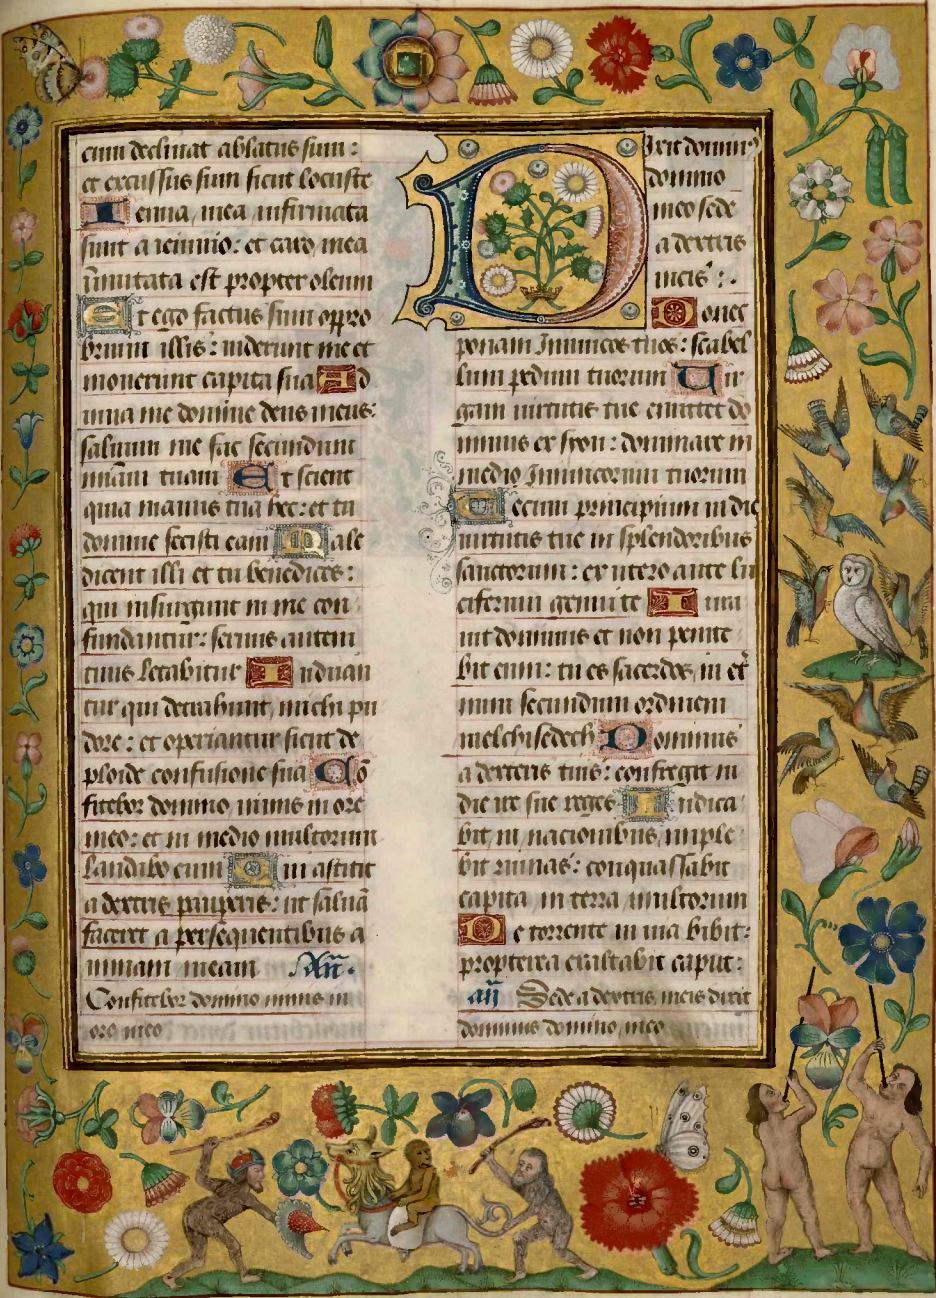 cum declinat ablatus sum :
et excussus sum sicut locuste
Genua mea infirmata
sunt a ieiunio : et caro mea
inmutata est propter oleum
Et ego factus sum oppro
brium illis : uiderunt me et
mouerunt capita sua Ad
iuua me domine deus meus :
saluum me fac secundum
mĩam tuam Et scient
quia manus tua hec : et tu
domine fecisti eam Male
dicent illi et tu benedices :
qui insurgunt in me con
fundantur : seruus autem
tuus letabitur Induan
tur qui detrahunt michi pu
dore : et operiantur sicut de
ploide confusione sua Cõ
fitebor domino nimis in ore
meo : et in medio multorum
laudabo eum Qui astitit
a dextris pauperis : ut saluã
faceret a persequentibus a
nimam meam Añ.
Confitebor domino nimis in
ore meo
Dixit dominꝰ
domino
meo sede
a dextris
meis :.
Donec
ponam Inimicos tuos : scabel
lum pedum tuorum Uir
gam uirtutis tue emittet do
minus ex syon : dominare in
medio Inimicorum tuorum
Tecum principium in die
uirtutis tue in splendoribus
sanctorum : ex utero ante lu
ciferum genui te Iura
uit dominus et non penite
bit eum : tu es sacerdos in et̃
num secundum ordinem
melchisedech Dominus
a dextris tuis : confregit in
die ire sue reges Iudica
bit in nacionibus imple
bit ruinas : conquassabit
capita in terra multorum
De torrente in uia bibit :
propterea exaltabit caput :
añ Sede a dextris meis dixit
dominus domino meo